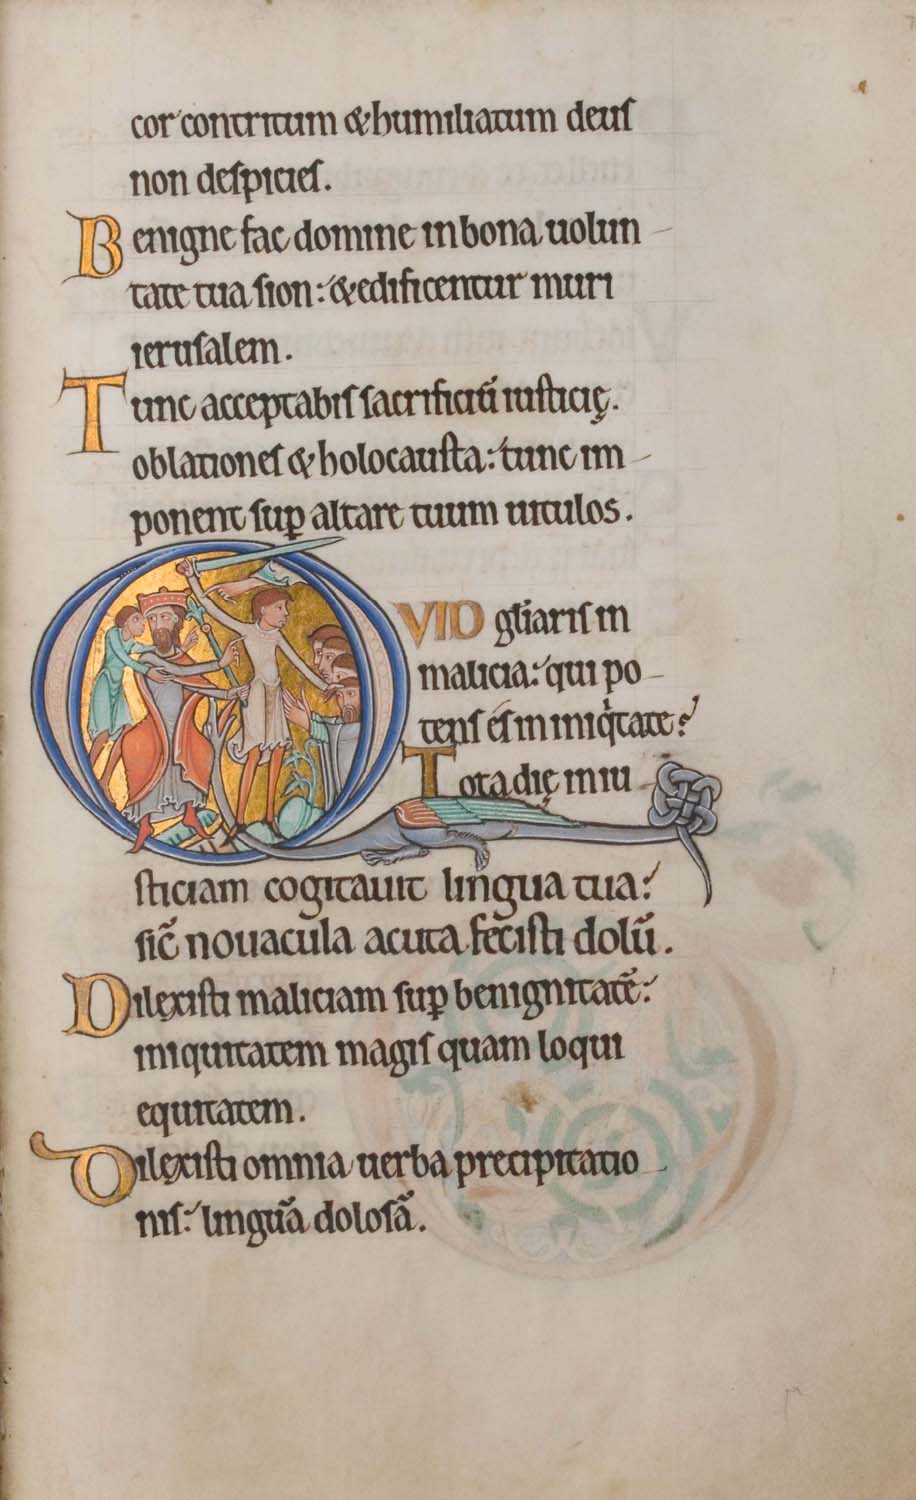 cor contritum &humiliatum deus
non despicies.
Benigne fac domine in bona uolun
tate tua sion: &edificentur muri
ierusalem.
Tunc acceptabis sacrificiū iusticię.
oblationes & holocausta: tunc im
ponent sup altare tuum uitulos.
QVID gl̄iaris in
malicia: qui po
tens ēs in iniq̇tate?
Tota die iniu
sticiam cogitauit lingua tua:
sic̄ nouacula acuta fecisti dolū.
Dilexisti maliciam sup benignitatē:
iniquitatem magis quam loqui
equitatem.
Dilexisti omnia uerba precipitatio
nis: linguā dolosā.